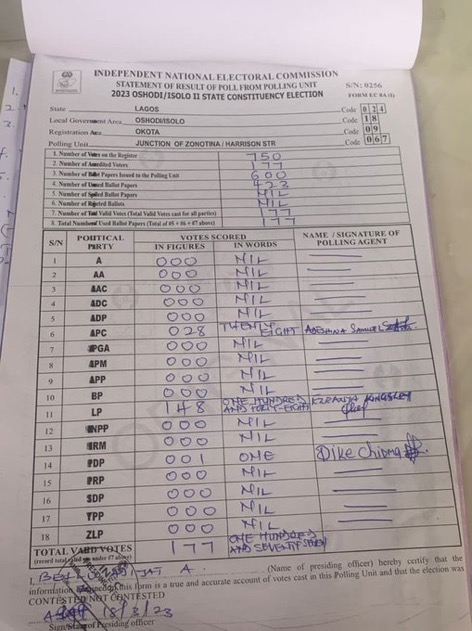 INDEPENDENT NATIONAL ELECTORAL COMMISSION
STATEMENT OF RESULT OF POLL FROM POLLING UNIT
S/N: 0256
2023 OSHODI/ISOLO II STATE CONSTITUENCY ELECTION
FORM EC 8A (I)
State LAGOS Code 024
Local Government Area OSHODI/ISOLO Code 18
Registration Area OKOTA Code 09
Polling Unit JUNCTION OF ZONOTINA / HARRISON STR Code 067
1. Number of Voters on the Register 750
2. Number of Accredited Voters 177
3. Number of Ballot Papers Issued to the Polling Unit 600
4. Number of Unused Ballot Papers 423
5. Number of Spoiled Ballot Papers NIL
6. Number of Rejected Ballots NIL
7. Number of Total Valid Votes (Total Valid Votes cast for all parties) 177
8. Total Number of Used Ballot Papers (Total of #5 + #6 + #7 above) 177
S/N POLITICAL PARTY VOTES SCORED NAME / SIGNATURE OF POLLING AGENT
IN FIGURES IN WORDS
1 A 000 NIL
2 AA 000 NIL
3 AAC 000 NIL
4 ADC 000 NIL
5 ADP 000 NIL
6 APC 028 TWENTY EIGHT ADESHINA SAMUEL
7 APGA 000 NIL
8 APM 000 NIL
9 APP 000 NIL
10 BP 000 NIL
11 LP 148 ONE HUNDRED AND FORTY-EIGHT KINGSLEY
12 NNPP 000 NIL
13 NRM 000 NIL
14 PDP 001 ONE Dike Chioma
15 PRP 000 NIL
16 SDP 000 NIL
17 YPP 000 NIL
18 ZLP 000 NIL
TOTAL VALID VOTES 177 ONE HUNDRED AND SEVENTY SEVEN
(record total valid as under #7 above)
I, A. (Name of presiding officer) hereby certify that the
information contained in this form is a true and accurate account of votes cast in this Polling Unit and that the election was
CONTESTED/NOT CONTESTED
18/3/23
Sign/Stamp of Presiding officer